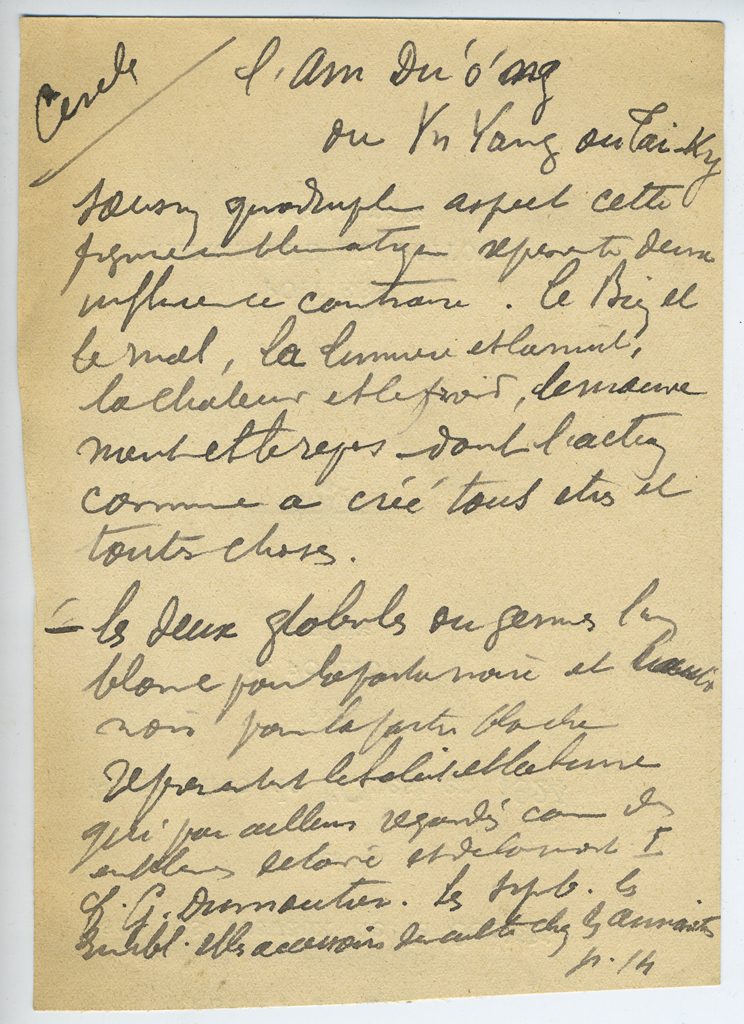 Cercle
l'Am Dư'ơ'ng
ou Yn Yang ou Tai-Ky
sous un quadruple aspect cette
figure emblematique represente deux
influence contraire. Le Bien et
le mal, la lumiere et la nuit,
la chaleur et le froid, le mouve
ment et le repos dont l'action
commune a créé tous etres et
toutes choses.
- les deux globules ou germes l'un
blanc pour la partie noire et l'autre
noir pour la partie blanche
represent le soleil et la lune
qui par ailleurs regardés com des
emblemes de la vie et de la mort
G. Dumoutier. Les symb. les
embl. et les accessoires du culte chez les annamites
p. 14